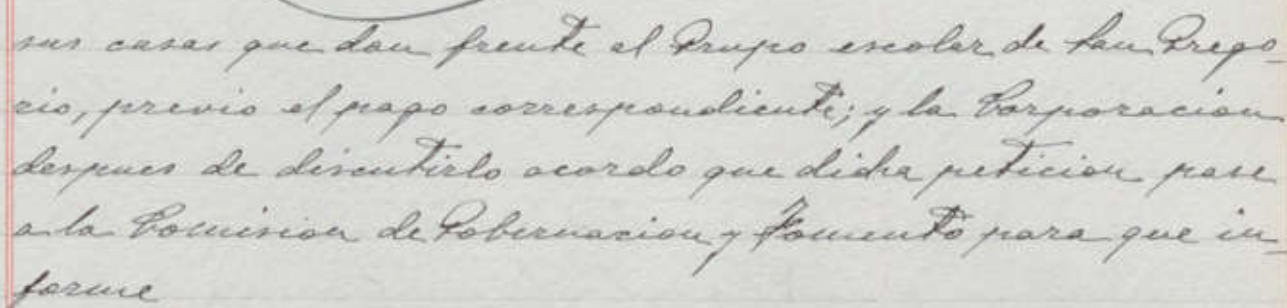 sus casas que dan frente al Grupo escolar de San Grego-
rio, previo el pago correspondiente; y la Corporacion
despues de discutirlo acordo que dicha peticion pase
a la Comision de Gobernacion y Fomento para que in-
forme